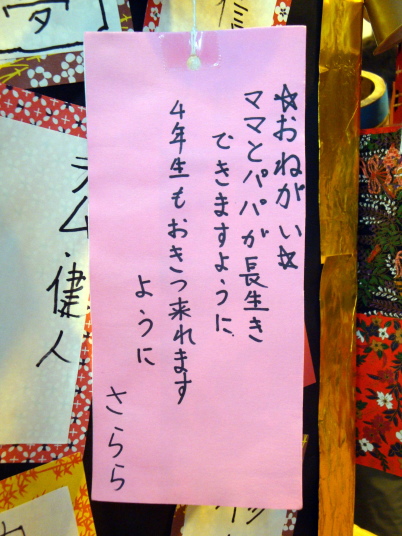 ☆おねがい☆
ママとパパが長生き
できますように
4年生もおきつ来れます
ように
さらら
ラム・健人